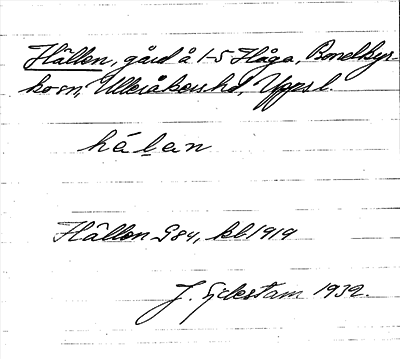 Hållen, gård å 1-5 Håga, Bondkyr-
ko sn, Ulleråkers hd, Uppsl.
hålan
Hållen G84, kbl 1919
J. Gillestam 1932.